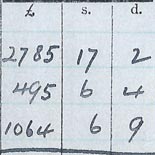 £ s. d.
2785 17 2
495 6 4
1064 6 9